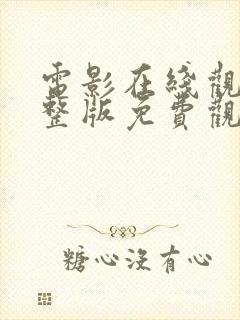 電影在綫觀
整版免費觀
糖心沒有心